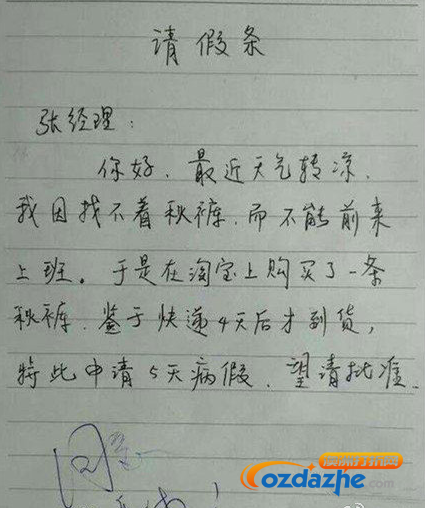 请假条
张经理：
你好。最近天气转凉，
我因找不着秋裤，而不能前来
上班。于是在淘宝上购买了一条
秋裤，鉴于快递4天后才到货，
特此申请5天病假，望请批准。
ozdazhe